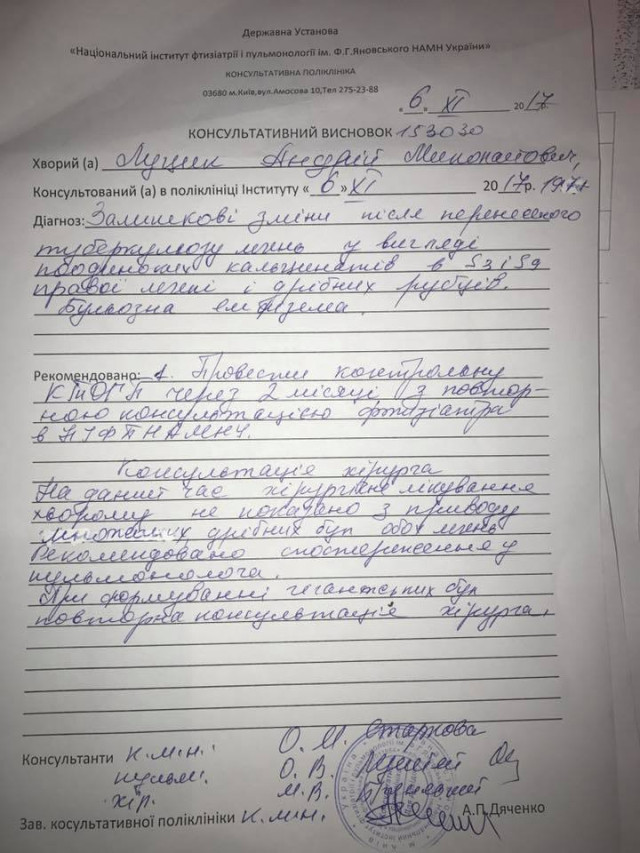 Державна Установа
«Національний інститут фтизіатрії і пульмонології ім. Ф.Г.Яновського НАМН України»
КОНСУЛЬТАТИВНА ПОЛІКЛІНІКА
03680 м.Київ,вул.Амосова 10,Тел 275-23-88
6 XI 2017.
КОНСУЛЬТАТИВНИЙ ВИСНОВОК 153030
Хворий (а) Луцик Андрій Миколайович,
Консультований (а) в поліклініці Інституту «6» XI 2017р. 1971
Діагноз: Залишкові зміни після перенесеного
туберкульозу легень у вигляді
поодиноких кальцинатів в S3 і S9
правої легені і дрібних рубців.
Бульозна емфізема.
Рекомендовано: 1. Провести контрольну
КТ ОГП через 2 місяці з повтор-
ною консультацією фтизіатра
в НІФПНАМНУ.
Консультація хірурга
На даний час хірургічне лікування
хворому не показано з приводу
множинних дрібних бул обох легень
Рекомендовано спостереження у
пульмонолога.
При формуванні гігантських бул
повторна консультація хірурга.
Консультанти к.м.н. О.М.
пульм. О.В.
хір. М.В.
Зав. косультативної поліклініки к.м.н. А.П.Дяченко